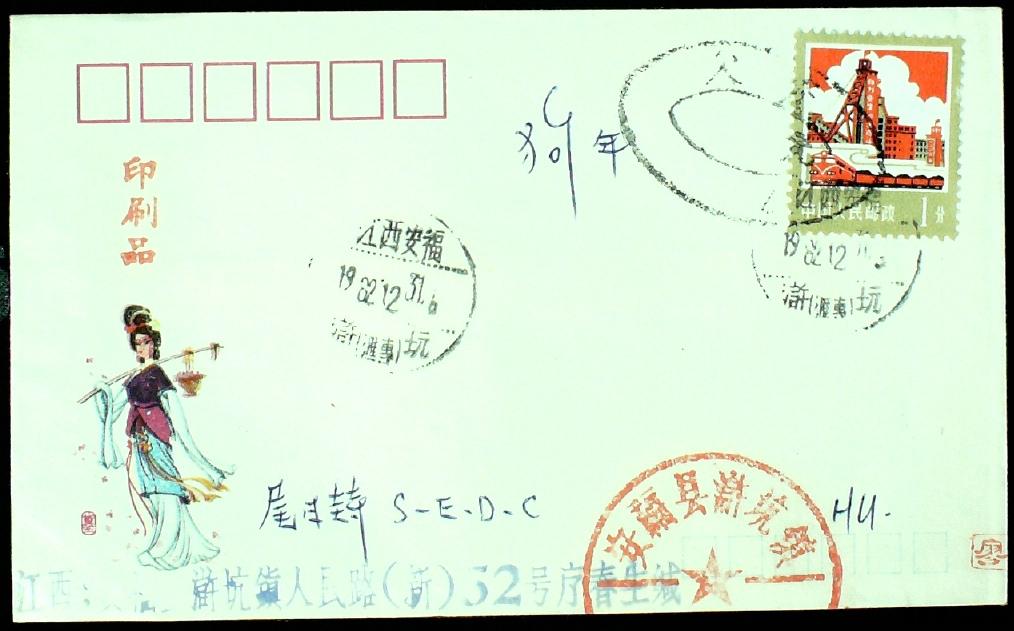 印刷品
狗年
中国人民邮政 1分
江西安福
1982.12.31.6
浒(汇专)坑
1982.12
浒(汇专)坑
尾日 S-E-D-C
HU.
安福县浒坑镇
江西 浒坑镇人民路(浒)52号 春生缄